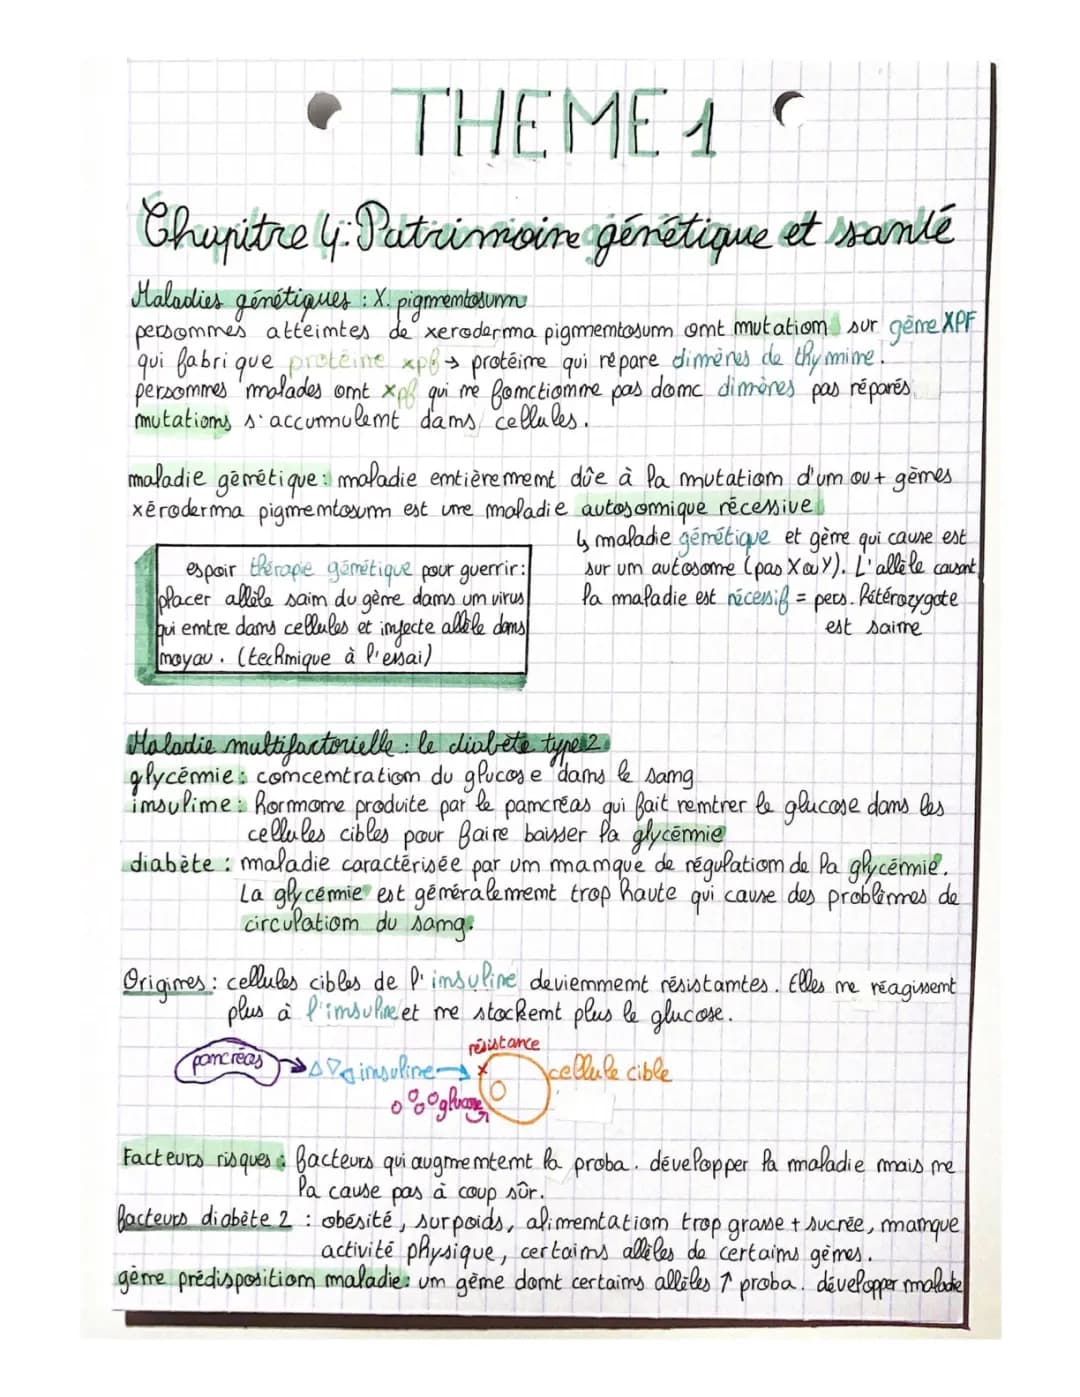 THEME 1
Chapitre 4: Patrimoine génétique et santé
Maladies génétiques : X. pigmentosum
personnes atteintes de xeroderma pigmentosum ont mutation sur gène XPF
qui fabrique protéine xpf → protéine qui répare dimères de thymine.
personnes malades ont xpf qui ne fonctionne pas donc dimères pas réparés,
mutations s'accumulent dans cellules.
maladie génétique : maladie entièrement dûe à la mutation d'un ou + gènes
xéroderma pigmentosum est une maladie autosomique récessive
↳ maladie génétique et gène qui cause est
sur un autosome (pas X ou Y). L'allèle causant
la maladie est récessif = pers. hétérozygote
est saine
espoir thérapie génétique pour guerrir :
placer allèle sain du gène dans un virus
qui entre dans cellules et injecte allèle dans
noyau. (technique à l'essai)
Maladie multifactorielle : le diabète type 2
glycémie : concentration du glucose dans le sang
insuline : hormone produite par le pancréas qui fait rentrer le glucose dans les
cellules cibles pour faire baisser la glycémie
diabète : maladie caractérisée par un manque de régulation de la glycémie.
La glycémie est généralement trop haute qui cause des problèmes de
circulation du sang.
Origines : cellules cibles de l'insuline deviennent résistantes. Elles ne réagissent
plus à l'insuline et ne stockent plus le glucose.
résistance
pancréas → insuline → x cellule cible
glucose
Facteurs risques : facteurs qui augmentent la proba. développer la maladie mais ne
la cause pas à coup sûr.
facteurs diabète 2 : obésité, surpoids, alimentation trop grasse + sucrée, manque
activité physique, certains allèles de certains gènes.
gène prédisposition maladie : un gène dont certains allèles ↑ proba. développer maladie